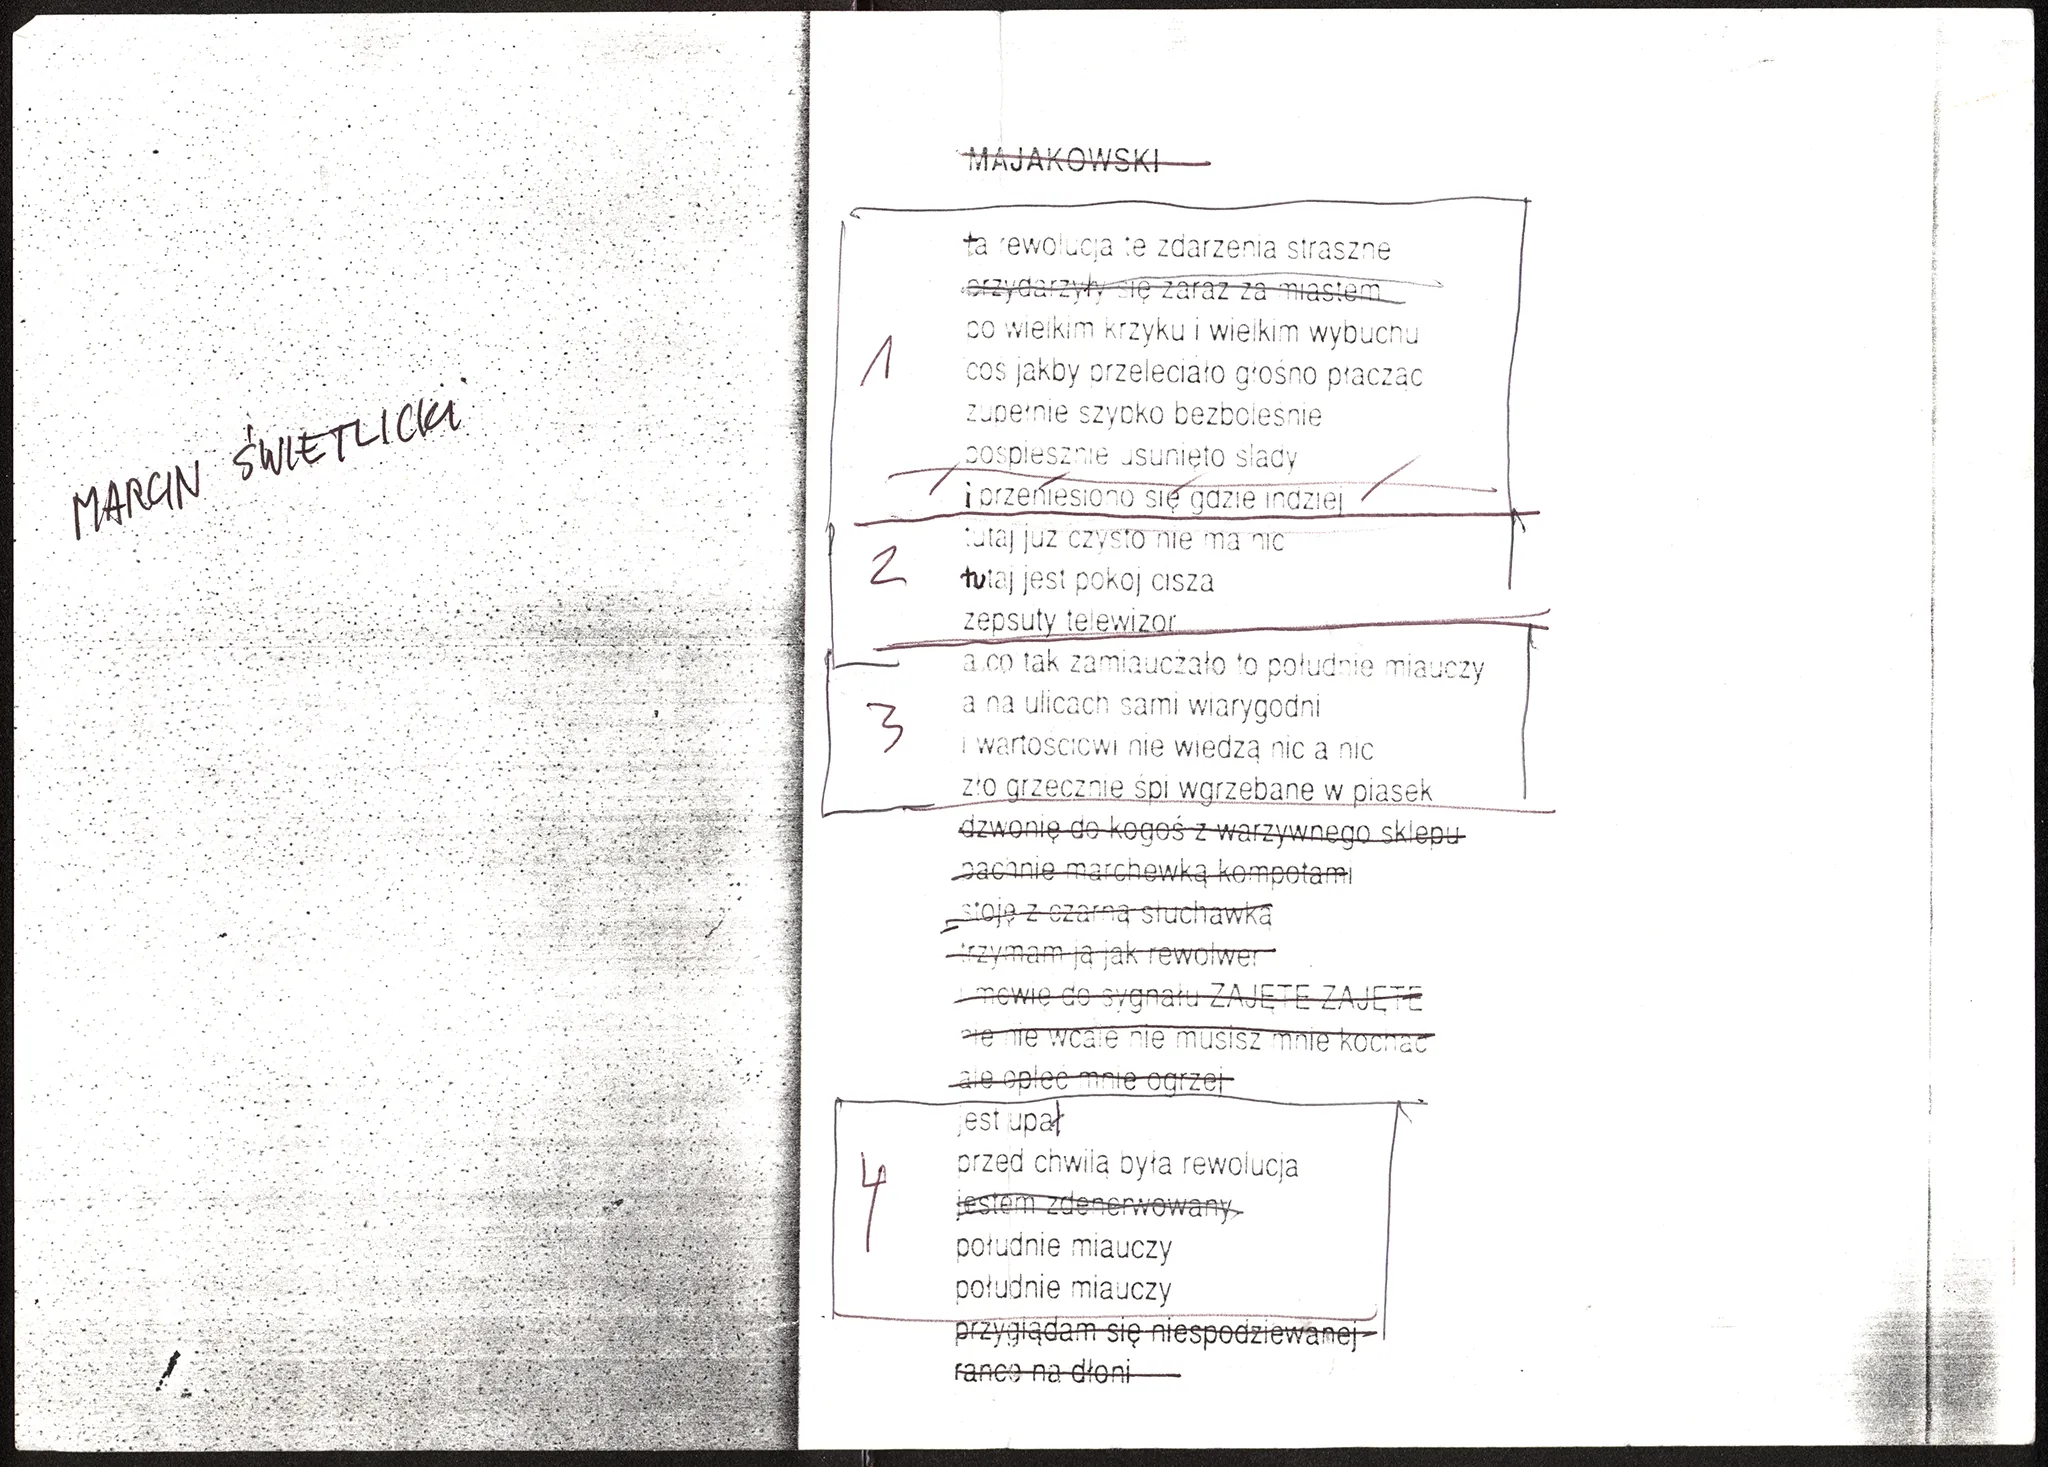 MARCIN ŚWIETLICKI
MAJAKOWSKI
1
ta rewolucja te zdarzenia straszne
przydarzyły się zaraz za miastem
po wielkim krzyku i wielkim wybuchu
coś jakby przeleciało głośno płacząc
zupełnie szybko bezboleśnie
pospiesznie usunięto ślady
i przeniesiono się gdzie indziej
2
tutaj już czysto nie ma nic
tutaj jest pokój cisza
zepsuty telewizor
3
a co tak zamiauczało to południe miauczy
a na ulicach sami wiarygodni
i wartościowi nie wiedzą nic a nic
zło grzecznie śpi wgrzebane w piasek
dzwonię do kogoś z warzywnego sklepu
pachnie marchewką kompotami
stoję z czarną słuchawką
trzymam ją jak rewolwer
i mówię do sygnału ZAJĘTE ZAJĘTE
nie nie wcale nie musisz mnie kochać
ale opleć mnie ogrzej
4
jest upał
przed chwilą była rewolucja
jestem zdenerwowany
południe miauczy
południe miauczy
przyglądam się niespodziewanej
rance na dłoni